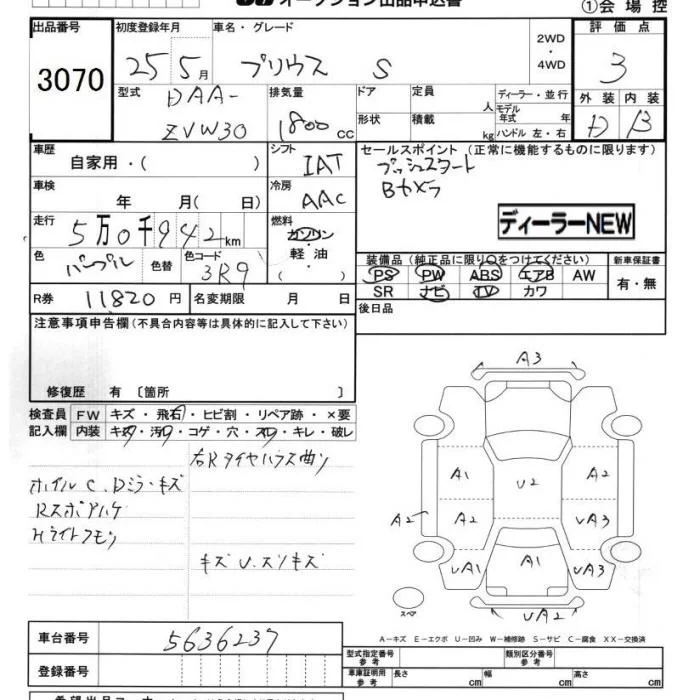 オークション出品申込書 ①会場控
出品番号 初度登録年月 車名・グレード 2WD・4WD 評価点
3070 25 5月 プリウス S 3
型式 DAA-ZVW30 排気量 1800cc ドア 形状 定員 人 積載 kg ディーラー・並行 モデル年式 年 ハンドル 左・右 外装 内装
D B
車歴 自家用・( ) シフト IAT セールスポイント (正常に機能するものに限ります)
車検 年 月( 日) 冷房 AAC プッシュスタート
Bカメラ
走行 5万0千942km 燃料 ガソリン・軽油・( ) ディーラーNEW
色 パープル 色替 色コード 3R9 装備品 (純正品に限り○をつけてください) 新車保証書
PS PW ABS エアB AW 有・無
SR ナビ TV カワ
R券 11820円 名変期限 月 日 後日品
注意事項申告欄(不具合内容等は具体的に記入して下さい)
修復歴 有 〔箇所 〕
検査員 FW キズ・飛石・ヒビ割・リペア跡・×要
記入欄 内装 キズ・汚れ・コゲ・穴・スレ・キレ・破レ
右Rタイヤハウス曲り
ホイルC、Dミラーキズ
Rスポアハゲ
Hライトクモリ
キズU、スリキズ
A3
A1 U2 A2
A2 A2 UA3
UA1 A1 UA3
UA2
スペア
A-キズ E-エクボ U-凹み W-補修跡 S-サビ C-腐食 XX-交換済
車台番号 5636237
型式指定番号 参考 類別区分番号 参考
登録番号 車庫証明用 参考 長さ cm 幅 cm 高さ cm